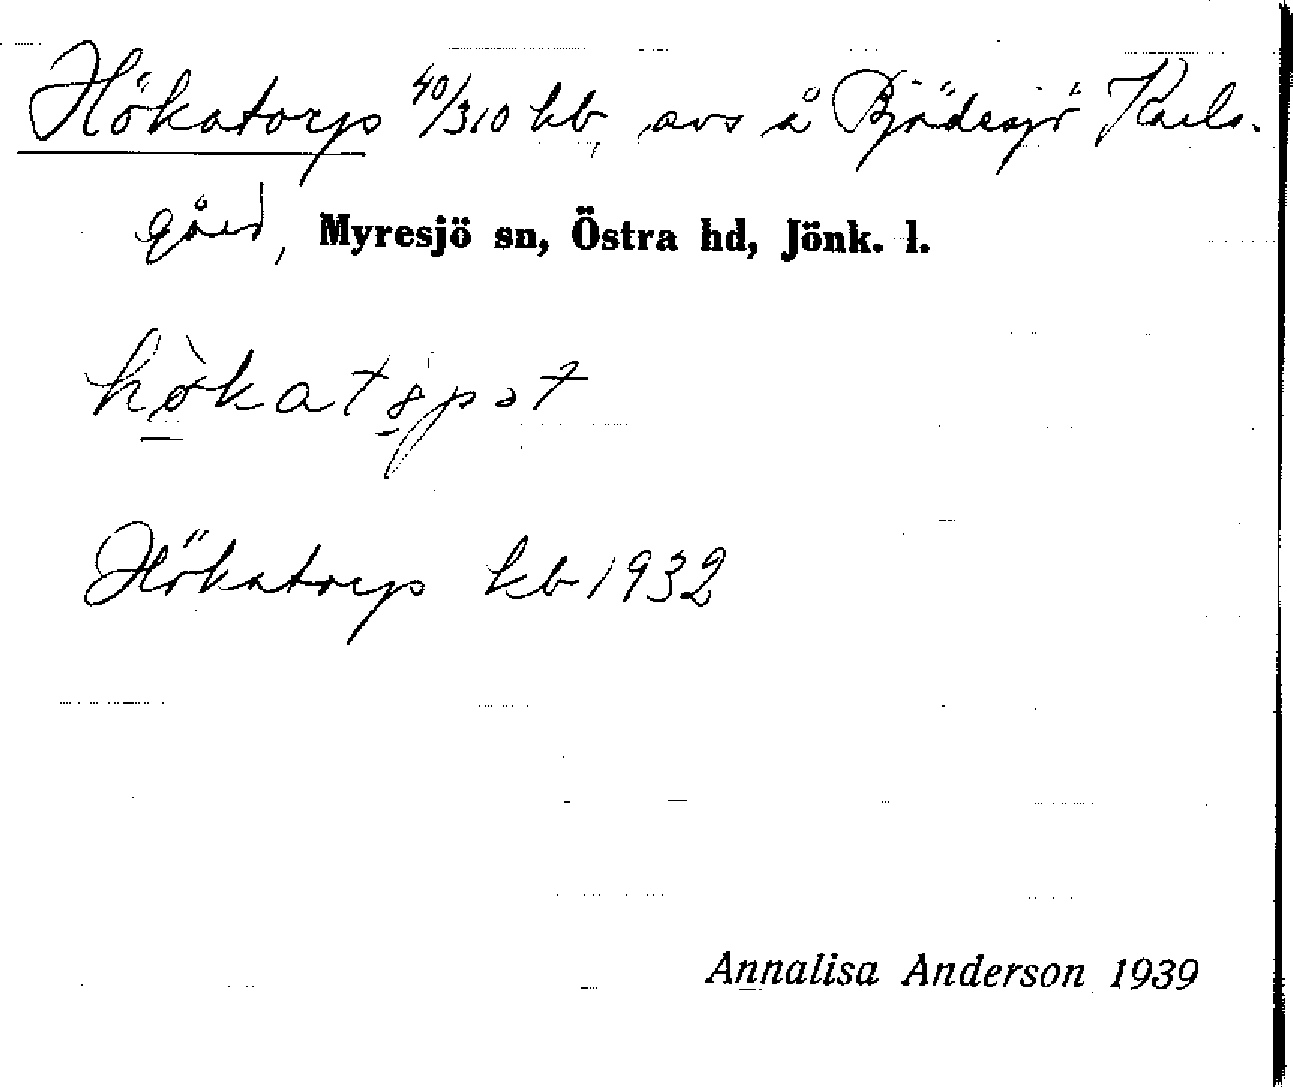 Hökatorp 40/310 hb, avs å Bjädesjö Karls-
gård, Myresjö sn, Östra hd, Jönk. l.
hökatǫpət
Hökatorp kb 1932
Annalisa Anderson 1939